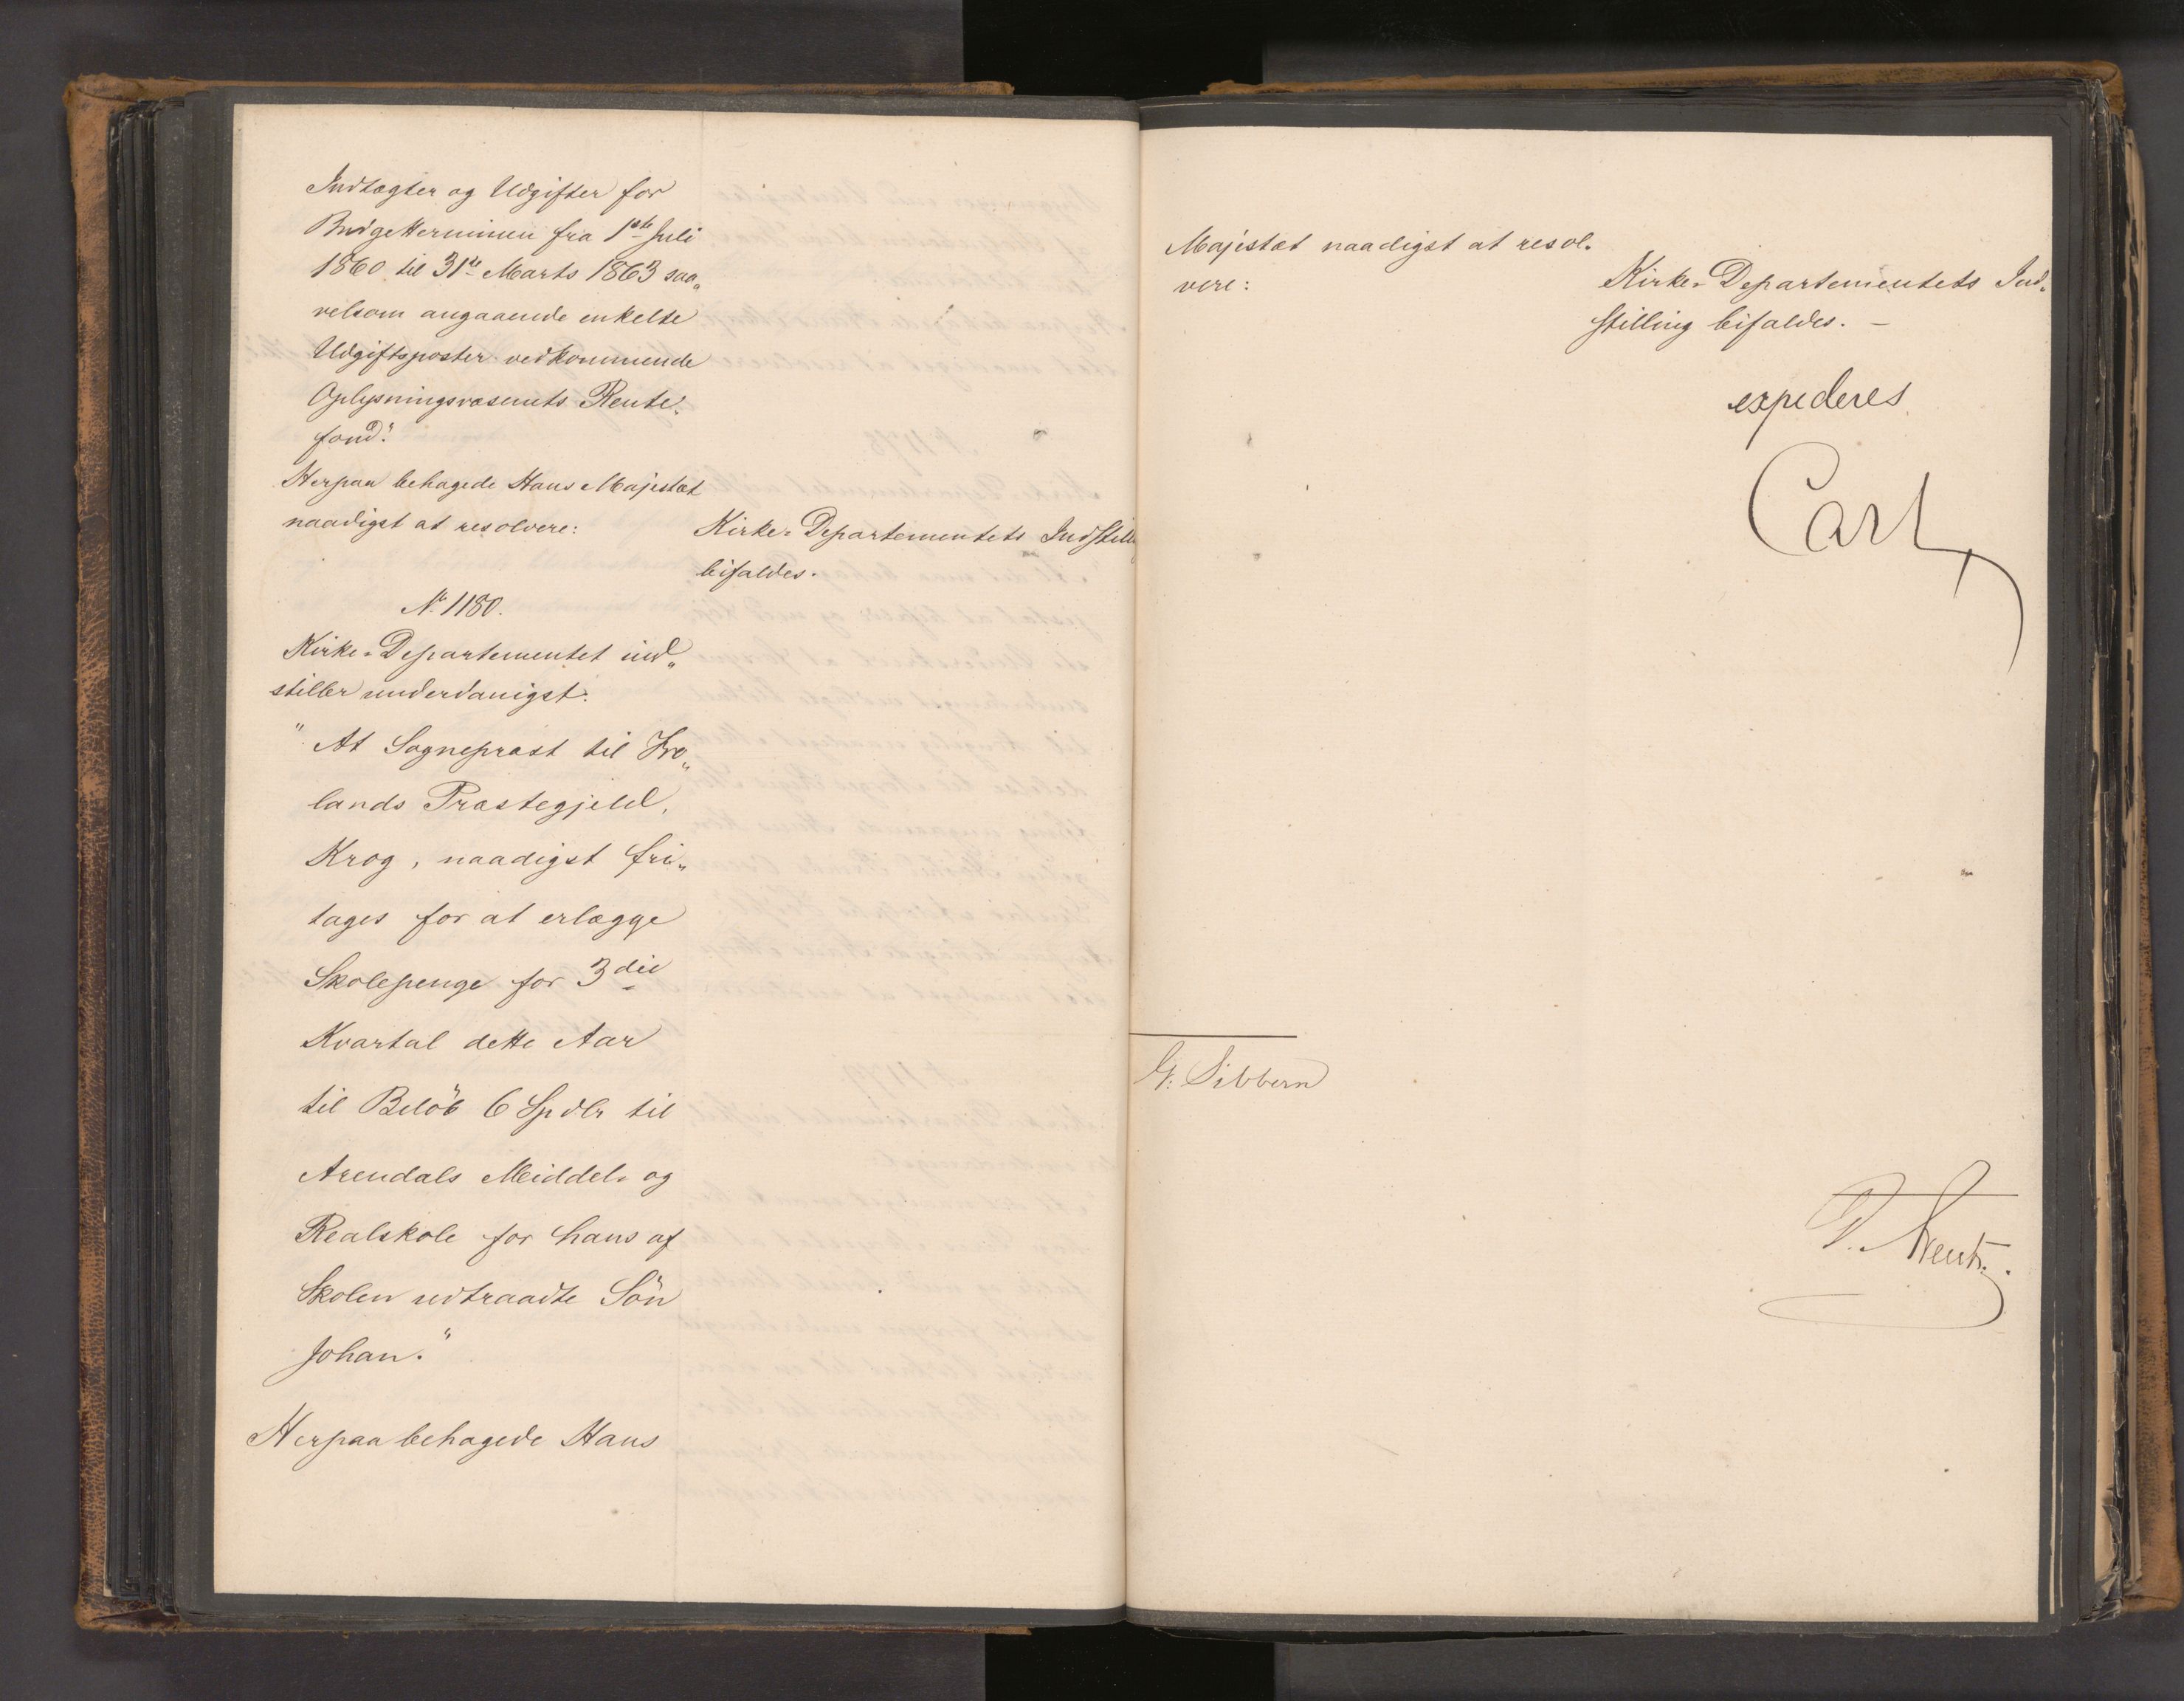 Indtægter og Udgifter for
Budgetterminen fra 1ste Juli
1860 til 31te Marts 1863 saa„
velsom angaaende enkelte
Udgiftsposter vedkommende
Oplysningsvæsenets Rente„
fond."
Herpaa behagede Hans Majestæt
naadigst at resolvere:
Kirke-Departementets Indstill
bifaldes.
No. 1180.
Kirke-Departementet ind„
stiller underdanigst:
"At Sognepræst til Fro„
lands Præstegjeld,
Krog, naadigst fri„
tages for at erlægge
Skolepenge for 3die
Kvartal dette Aar
til Beløb 6 Spdlr til
Arendals Middel- og
Realskole for hans af
Skolen udtraadte Sön
Johan."
Herpaa behagede Hans
Majestæt naadigst at resol-
vere:
Kirke-Departementets Ind„
stilling bifaldes. —
expederes
Carl
G. Sibbern